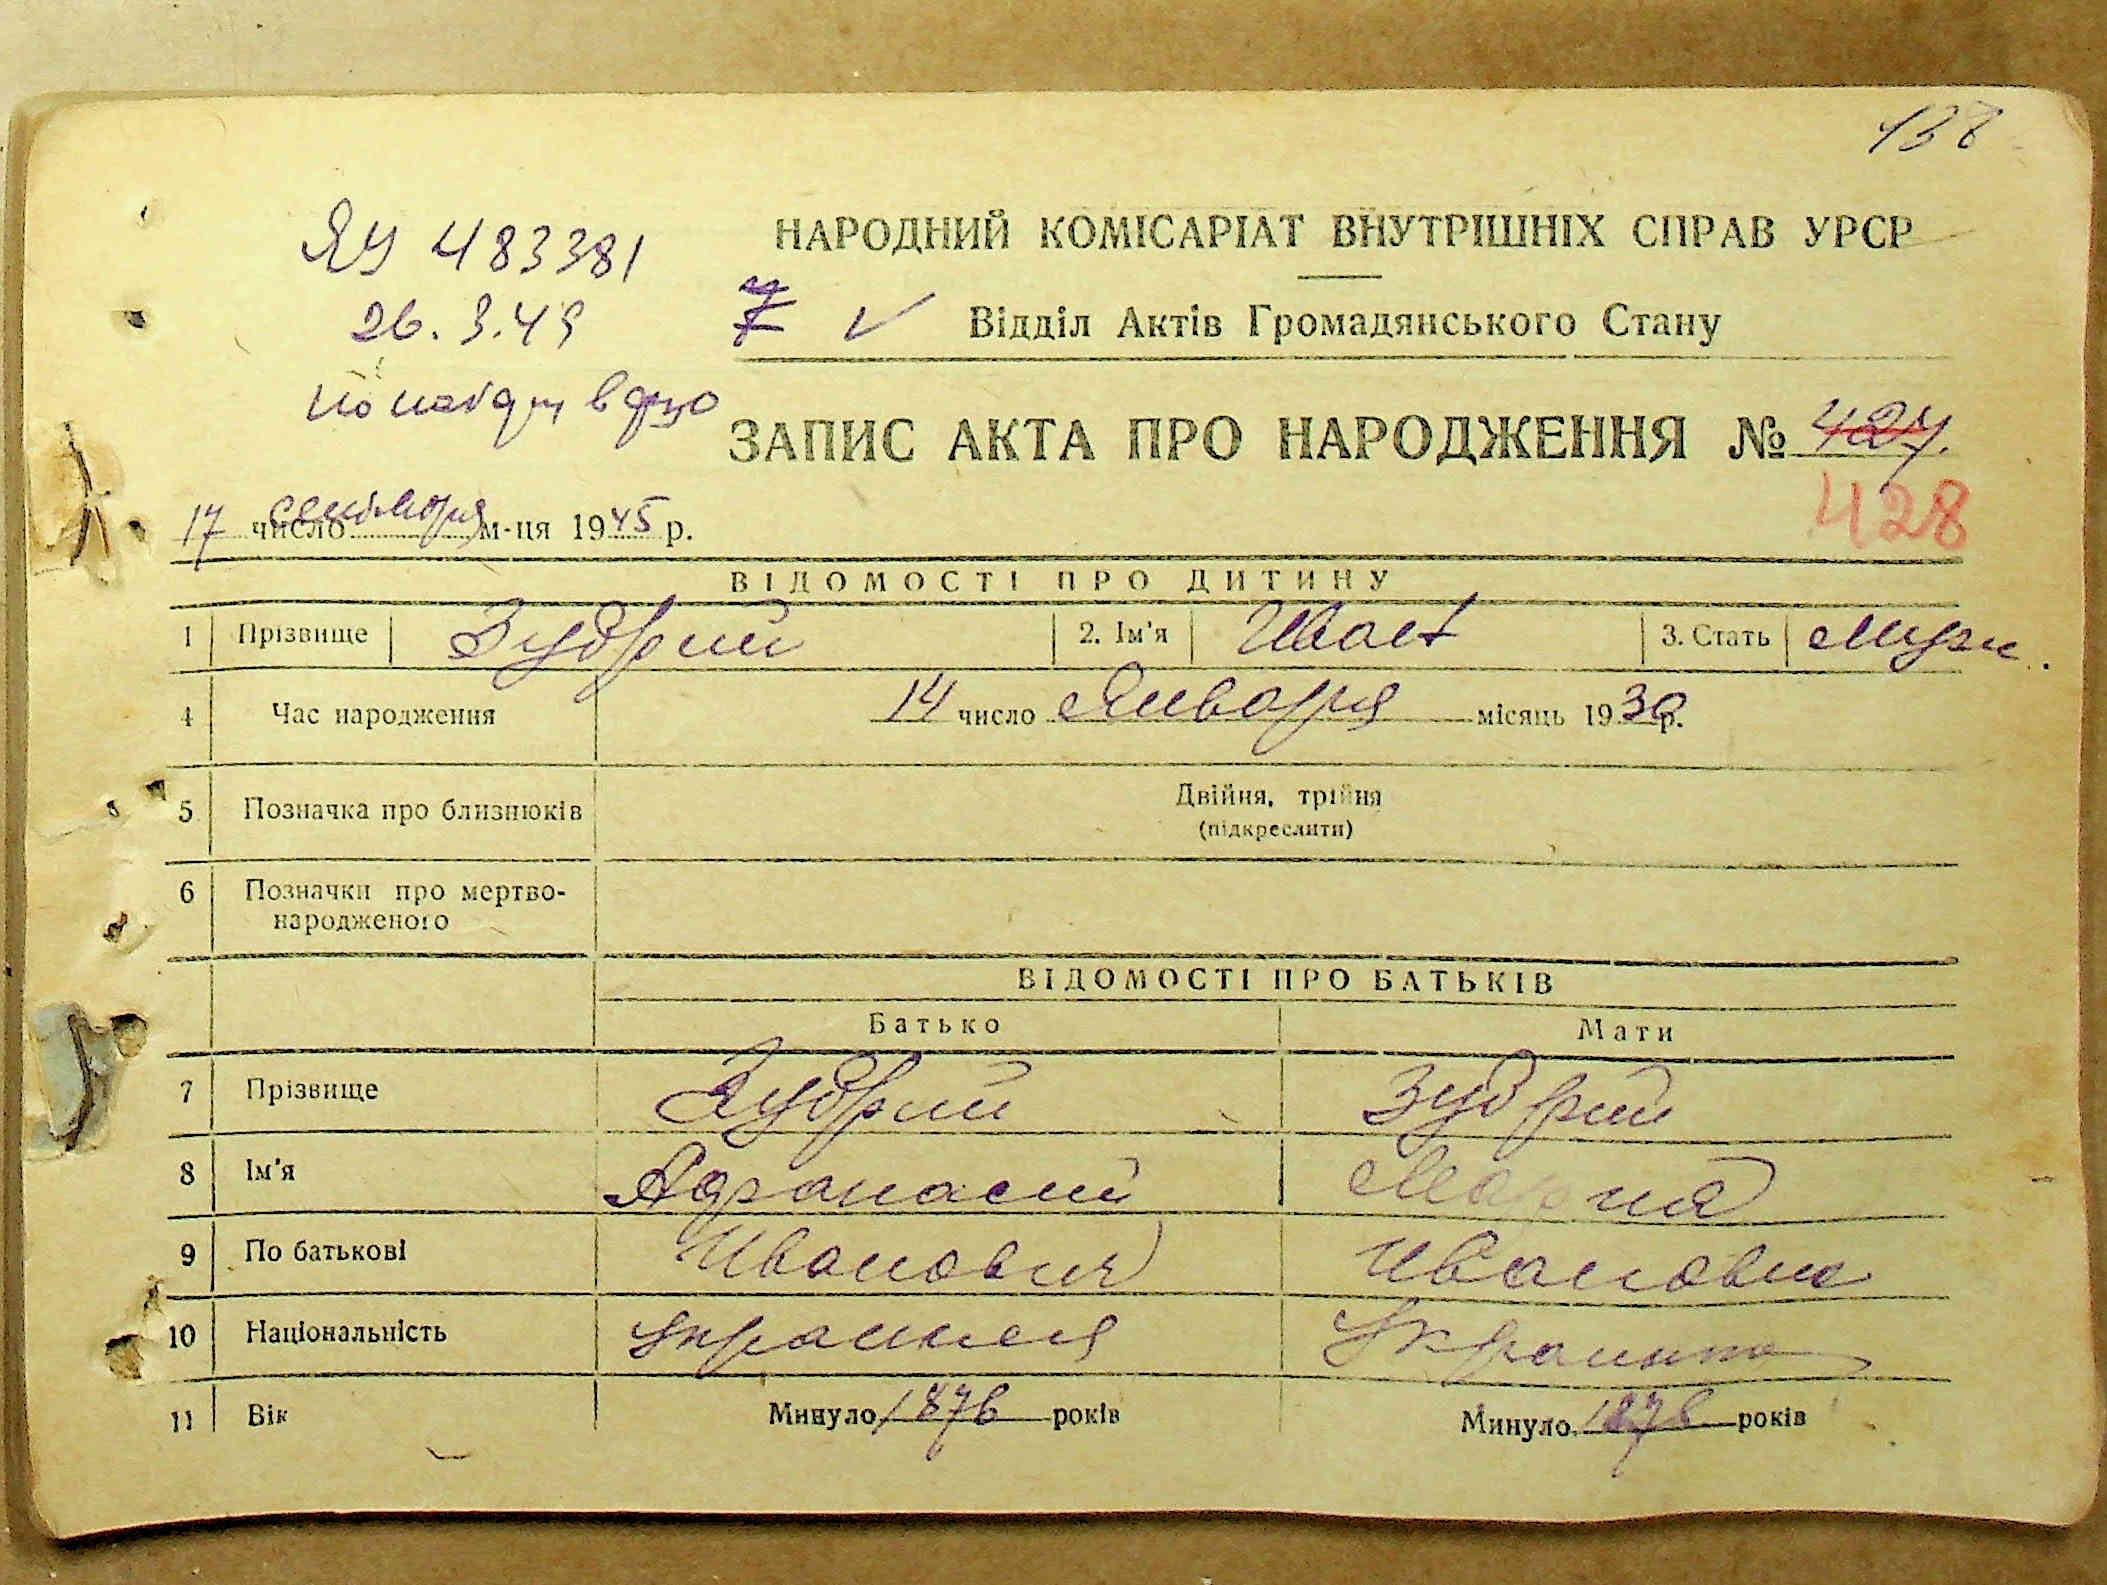 138
ЯУ 483381
26.3.49
НАРОДНИЙ КОМІСАРІАТ ВНУТРІШНІХ СПРАВ УРСР
Відділ Актів Громадянського Стану
ЗАПИС АКТА ПРО НАРОДЖЕННЯ № 427.
428
17 число сентября м-ця 1945 р.
ВІДОМОСТІ ПРО ДИТИНУ
1 Прізвище Зудрий 2. Ім'я Иван 3. Стать Муж.
4 Час народження 14 число Января місяць 1930 р.
5 Позначка про близнюків Двійня, трійня
(підкреслити)
6 Позначки про мертво-
народженого
ВІДОМОСТІ ПРО БАТЬКІВ
Батько Мати
7 Прізвище Зудрий Зудрий
8 Ім'я Афонасий Мария
9 По батькові Иванович Ивановна
10 Національність Украинец Украинка
11 Вік Минуло 1876 років Минуло 1878 років